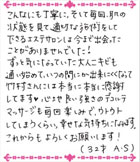 こんなにも丁寧に、そして毎回、肌の
状態を見て適切なお手付をして
できるエステサロンは今まで出会った
ことがありませんでした!
ずっと気になっていた大人ニキビも
通い始めて、いつの間にか出来にくくなって
竹村さんには本当に本当に感謝
してます♥心まで良い気のデコルテ
マッサージも毎回楽しみで、うっとり
してしまうくらい、幸せなお時間になります
これからもよろしくお願いします!
(32才 A・S)